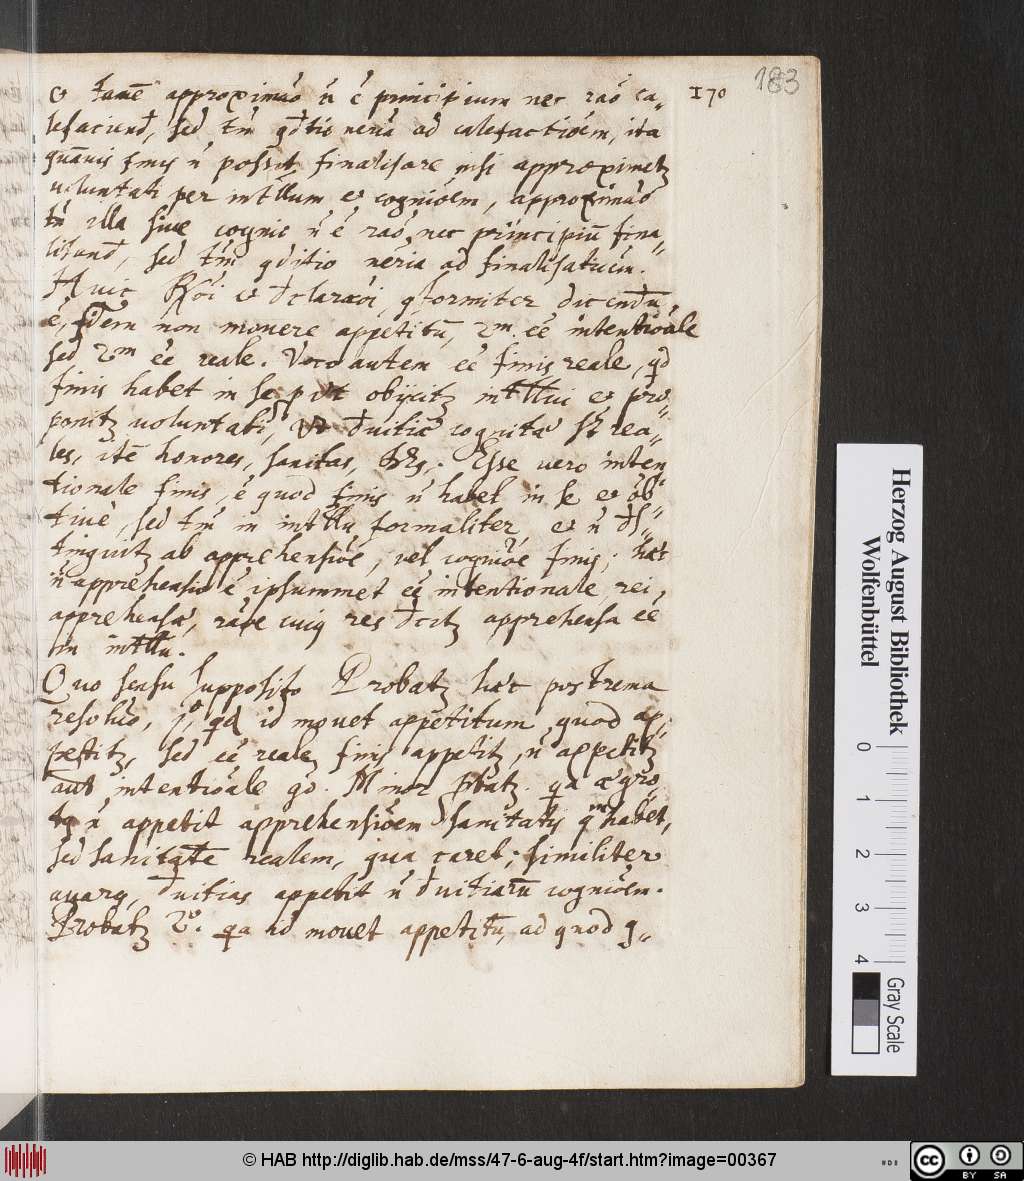 183
170
& tamē approximāo ñ ē principium nec rāo ca„
lefaciend, sed tm̄ qditio neria ad calefactiōem, ita
quāuis finis ñ possit finalisare nisi approximetz
voluntati per intllum & cogniōem, approximāo
tn̄ illa siue cognio ñ ē rāo, nec principiū fina„
lisand, sed tm̄ qditio neria ad finalisatiōm.
Huic & dclarāōi, qformiter dicendū
ē, finem non mouere appetitū, 2m. eē intentiōale
sed 2m eē reale. Voco autem eē finis reale, qd
finis habet in se put obijcitz intllui & pro„
ponitz voluntati, vt diuitiæ cognitæ st rea„
les, itē honores, sanitas, &c. Esse vero inten„
tionale finis, ē quod finis ñ habet in se & ob„
tiuē, sed tm̄ in intllu formaliter & ñ dis„
tinguitz ab apprehensiōe, vel cogniōe finis; hæc
ñ apprehensio ē ipsummet eē intentionale rei,
apprehensæ, rāoe cuiq res dcitz apprehensa eē
in intllu.
Quo sensu supposito Probatz hæc postrema
resolūo, j,º qa id mouet appetitum, quod ap„
petitz, sed eē reale finis appetitz, ñ appetitz
aut intentiōale go. Minor pbatz. qa ægro„
tq ñ appetit apprehensiōem sanitatis qm habet,
sed sanitatē realem, qua caret; similiter
auarq, diuitias appetit ñ diuitiarū cogniōem.
Probatz 2º. qa id mouet appetitū, ad quod q„
Herzog August Bibliothek
Wolfenbüttel
0 1 2 3 4
Gray Scale
© HAB http://diglib.hab.de/mss/47-6-aug-4f/start.htm?image=00367
cc BY SA